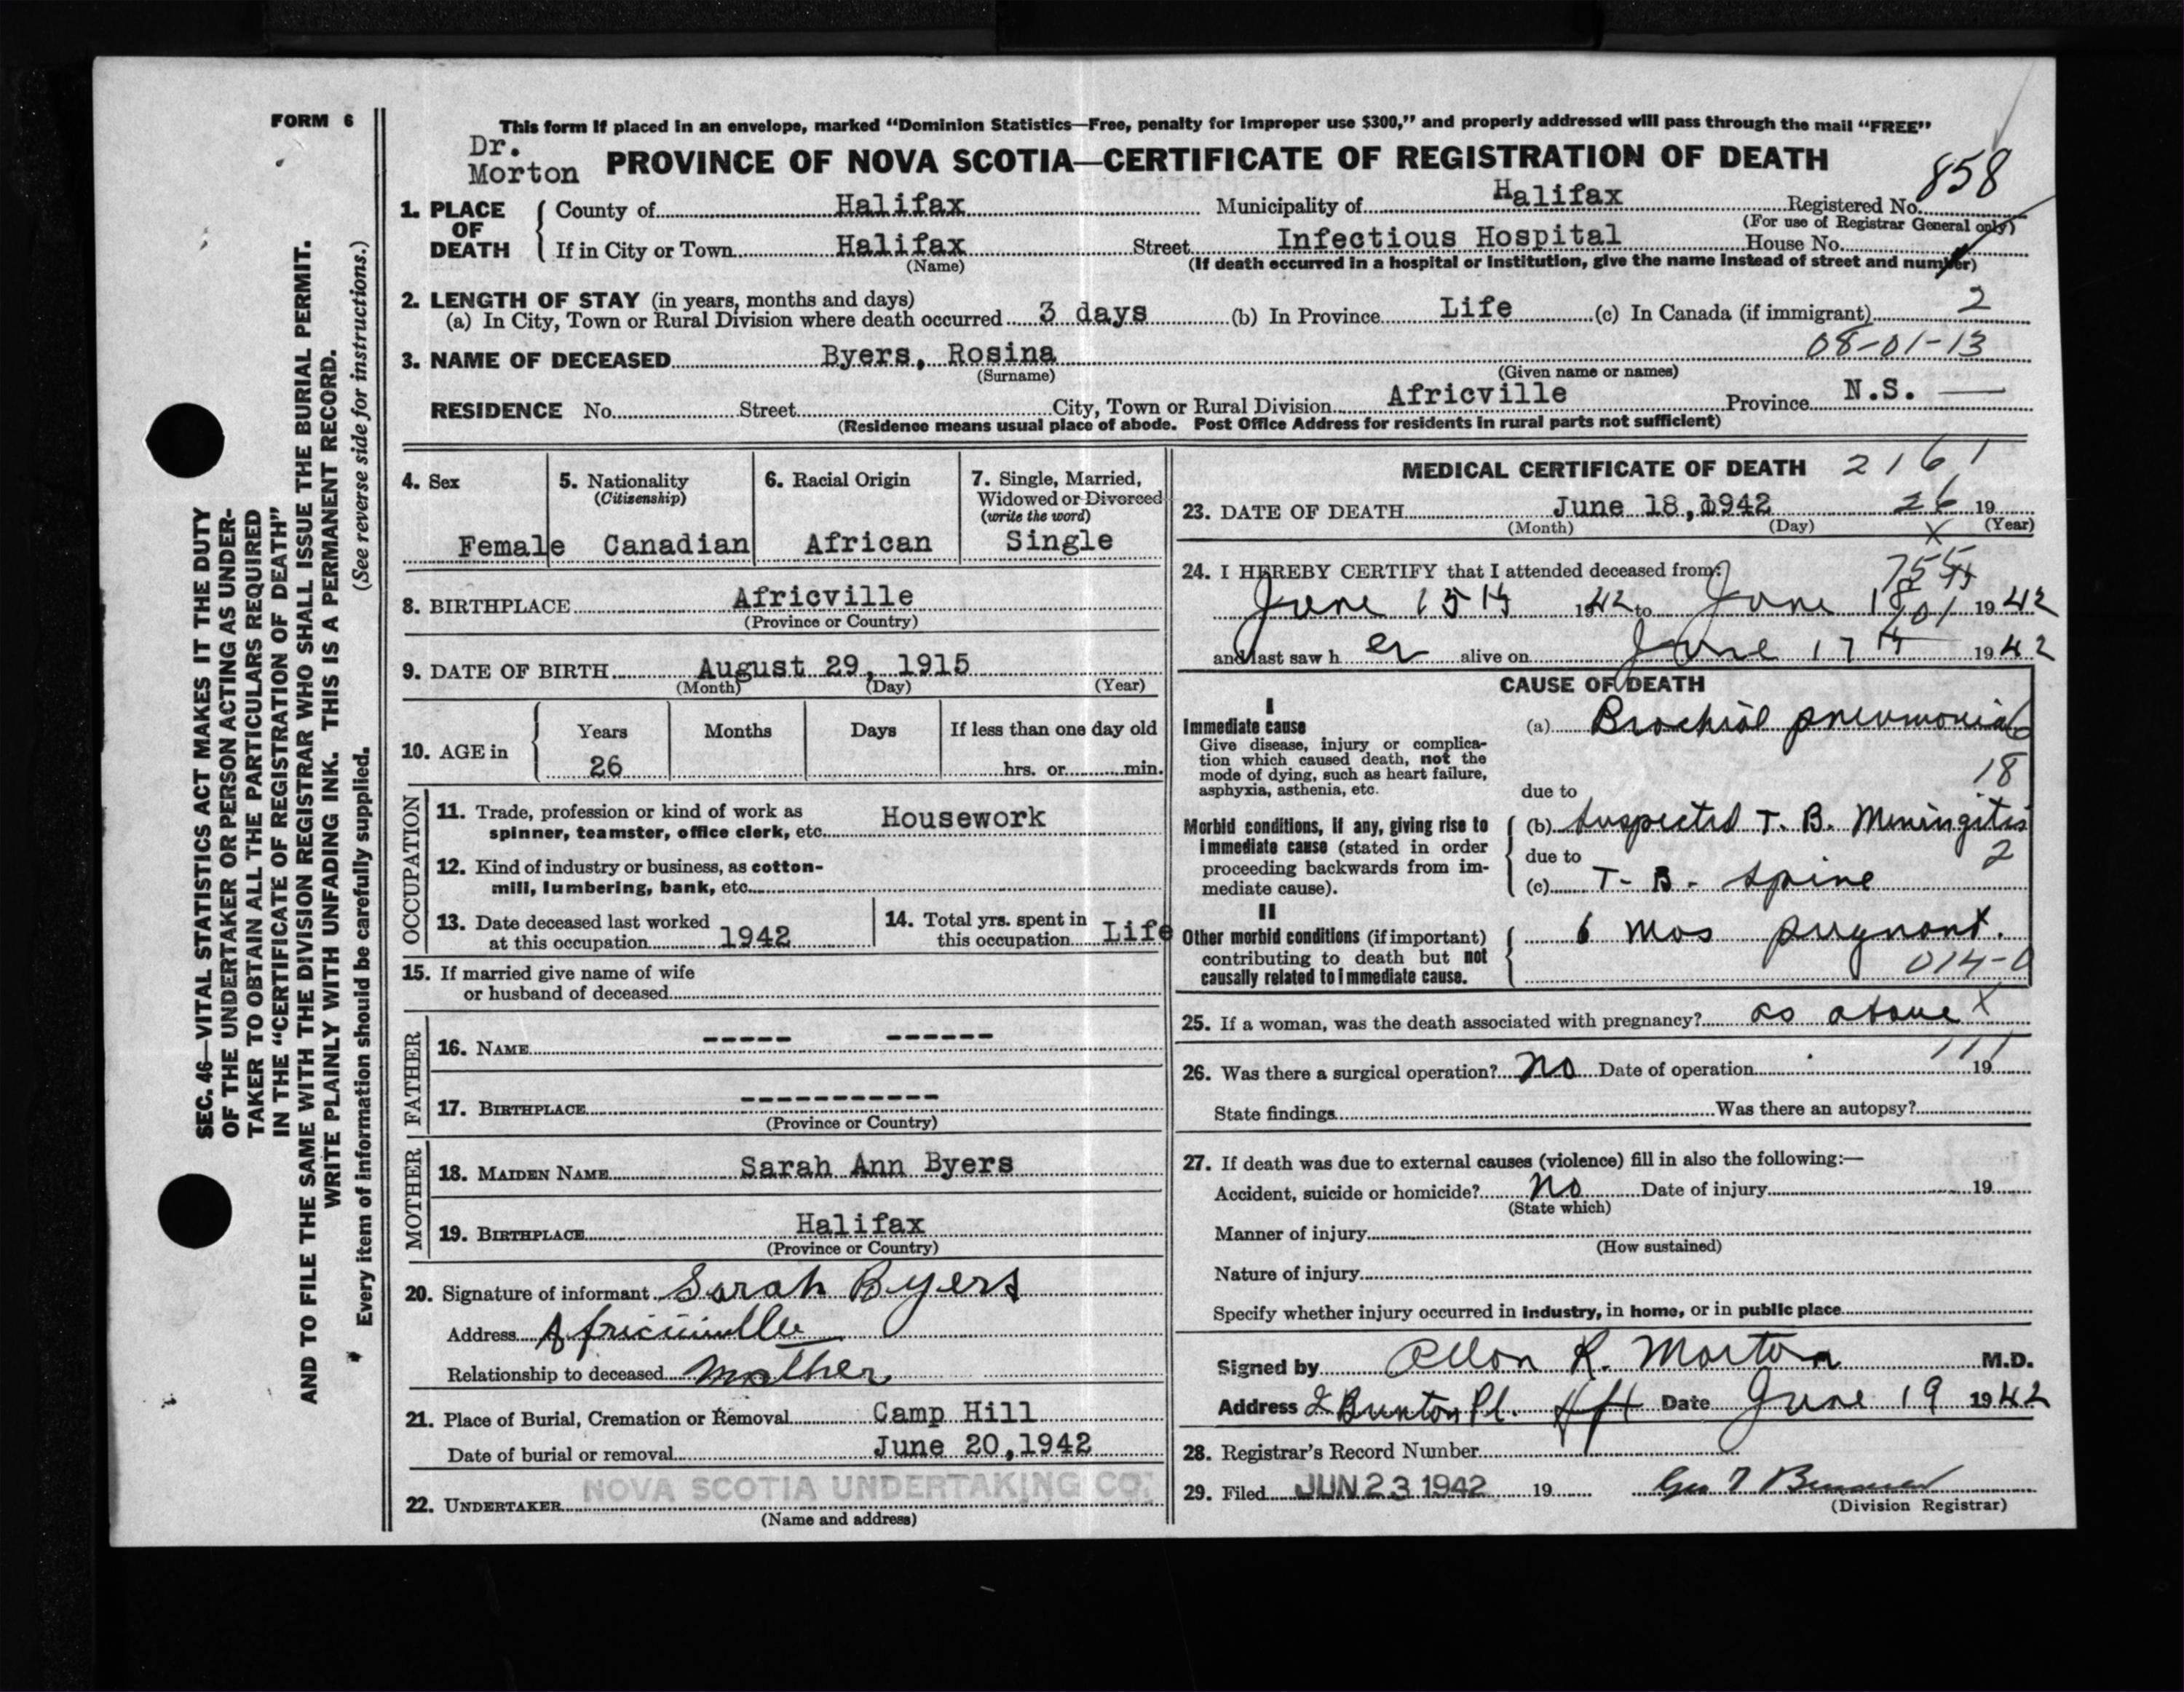 FORM 6
This form if placed in an envelope, marked “Dominion Statistics—Free, penalty for improper use $300,” and properly addressed will pass through the mail “FREE”
Dr.
Morton
PROVINCE OF NOVA SCOTIA—CERTIFICATE OF REGISTRATION OF DEATH
858
1. PLACE OF DEATH
County of Halifax Municipality of Halifax Registered No.
(For use of Registrar General only)
If in City or Town Halifax Street Infectious Hospital House No.
(Name) (If death occurred in a hospital or institution, give the name instead of street and number)
2. LENGTH OF STAY (in years, months and days)
(a) In City, Town or Rural Division where death occurred 3 days (b) In Province Life (c) In Canada (if immigrant) 2
08-01-13
3. NAME OF DECEASED Byers, Rosina
(Surname) (Given name or names)
RESIDENCE No. Street City, Town or Rural Division Africville Province N.S. —
(Residence means usual place of abode. Post Office Address for residents in rural parts not sufficient)
4. Sex
Female
5. Nationality
(Citizenship)
Canadian
6. Racial Origin
African
7. Single, Married,
Widowed or Divorced
(write the word)
Single
8. BIRTHPLACE Africville
(Province or Country)
9. DATE OF BIRTH August 29, 1915
(Month) (Day) (Year)
10. AGE in
Years Months Days If less than one day old
26 hrs. or min.
OCCUPATION
11. Trade, profession or kind of work as
spinner, teamster, office clerk, etc. Housework
12. Kind of industry or business, as cotton-
mill, lumbering, bank, etc.
13. Date deceased last worked
at this occupation 1942
14. Total yrs. spent in
this occupation Life
15. If married give name of wife
or husband of deceased
FATHER
16. NAME ----- ------
17. BIRTHPLACE -----------
(Province or Country)
MOTHER
18. MAIDEN NAME Sarah Ann Byers
19. BIRTHPLACE Halifax
(Province or Country)
20. Signature of informant Sarah Byers
Address Africville
Relationship to deceased Mother
21. Place of Burial, Cremation or Removal Camp Hill
Date of burial or removal June 20,1942
22. UNDERTAKER NOVA SCOTIA UNDERTAKING CO.
(Name and address)
MEDICAL CERTIFICATE OF DEATH 2161
23. DATE OF DEATH June 18, 1942 26 19
(Month) (Day) (Year)
X
24. I HEREBY CERTIFY that I attended deceased from:
June 15th 1942 to June 18 1942
and last saw her alive on June 17th 1942
CAUSE OF DEATH
I
Immediate cause
Give disease, injury or complica-
tion which caused death, not the
mode of dying, such as heart failure,
asphyxia, asthenia, etc.
(a) Brochial pneumonia
18
due to
Morbid conditions, if any, giving rise to
immediate cause (stated in order
proceeding backwards from im-
mediate cause).
(b) Suspected T. B. Miningitis
due to 2
(c) T. B. Spine
II
Other morbid conditions (if important)
contributing to death but not
causally related to immediate cause.
6 Mos pregnant.
014-0
25. If a woman, was the death associated with pregnancy? as above X
26. Was there a surgical operation? No Date of operation 19
State findings Was there an autopsy?
27. If death was due to external causes (violence) fill in also the following:—
Accident, suicide or homicide? No Date of injury 19
(State which)
Manner of injury
(How sustained)
Nature of injury
Specify whether injury occurred in industry, in home, or in public place
Signed by Allan R. Morton M.D.
Address Pl. Hfx Date June 19 1942
28. Registrar’s Record Number
29. Filed JUN 23 1942 19
(Division Registrar)
SEC. 46—VITAL STATISTICS ACT MAKES IT THE DUTY
OF THE UNDERTAKER OR PERSON ACTING AS UNDER-
TAKER TO OBTAIN ALL THE PARTICULARS REQUIRED
IN THE “CERTIFICATE OF REGISTRATION OF DEATH”
AND TO FILE THE SAME WITH THE DIVISION REGISTRAR WHO SHALL ISSUE THE BURIAL PERMIT.
WRITE PLAINLY WITH UNFADING INK. THIS IS A PERMANENT RECORD.
Every item of information should be carefully supplied. (See reverse side for instructions.)